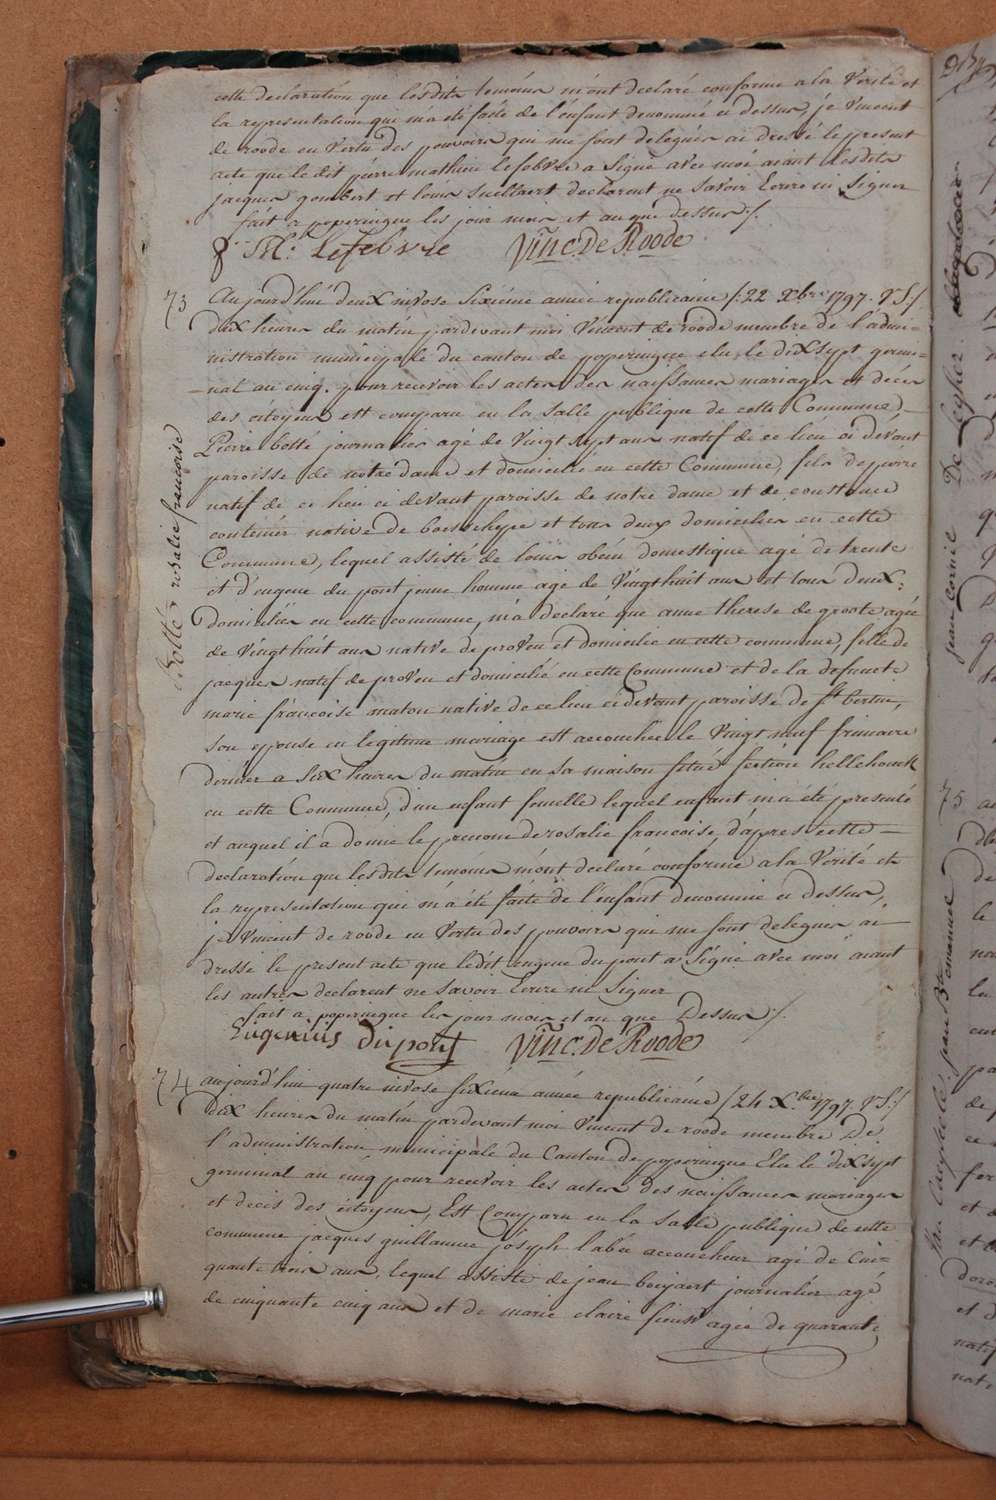 cette declaration que lesdits temoins m'ont declaré conforme a la verité et
la representation qui m'a été faite de l'enfant denommé ci dessus, je vincent
de roode en vertu des pouvoirs qui me sont delegués ai dressé le present
acte que le dit pierre mathieu lefebvre a signé avec moi aiant lesdits
jacques gombert et louis declarent ne savoir Ecrire ni signer
fait a poperingue les jour mois et an que dessus ./.
P. M. Lefebvre Vinc. De Roode
73 Aujourd'hui deux nivose sixiéme année republicaine /: 22 Xbre 1797. V.S:/
dix heures du matin pardevant moi Vincent de roode membre de l'admi=
nistration municipale du canton de poperingue elu le dixsept germi=
=nal an cinq. pour recevoir les actes des naissances mariages et décés
des citoyens est comparu en la salle publique de cette Commune,
Pierre botté journalier agé de Vingt sept ans natif de ce lieu ci devant
paroisse de notre dame et domicilié en cette Commune, fils de pierre
natif de ce lieu ci devant paroisse de notre dame et de constance
coutenir native de boeschepe et tous deux domiciliés en cette
Commune, lequel assisté de louis obein domestique agé de trente
et d'eugene du pont jeune homme agé de Vingt huit ans et tous deux:
domiciliés en cette commune, m'a declaré que anne therese de groote agée
de Vingt huit ans native de proven et domicilie en cette commune, fille de
jacques natif de proven et domicilié en cette Commune et de la defuncte
marie françoise matou native de ce lieu ci devant paroisse de St bertin,
son epouse en legitime mariage est accouchée le Vingt neuf frimaire
dernier a six heures du matin en sa maison situé section hellehouck
en cette Commune, d'un enfant femelle lequel enfant m'a été presenté
et auquel il a donné le prenom de rosalie françoise, d'apres cette
declaration que lesdits temoins m'ont declaré conforme a la Verité et
la representation qui m'a été faite de l'enfant denommé ci dessus,
je Vincent de roode en Vertu des pouvoirs qui me sont delegués ai
dressé le present acte que ledit eugene du pont a Signé avec moi aiant
les autres declarent ne Savoir Ecrire ni Signer
fait a poperingue les jour mois et an que Dessus ./.
Eugenius dupont Vinc. De Roode
74 aujourd'hui quatre nivose sixieme année republicaine /: 24 X.bre 1797. V.S:/
Dix heures du matin pardevant moi Vincent de roode membre De
l'administration municipale du Canton de poperingue Elu le dixsept
germinal an cinq pour recevoir les actes des naissances mariages
et décés des citoyens, Est Comparu en la salle publique de cette
commune jacques guillaume joseph labée accoucheur agé de Cin=
quante trois ans, lequel assisté de jean boyaert journalier agé
de cinquante cinq ans et de marie claire agée de quarante
Botté rosalie françoise
jean cornil De Leyser
75
jean Bte emanuel